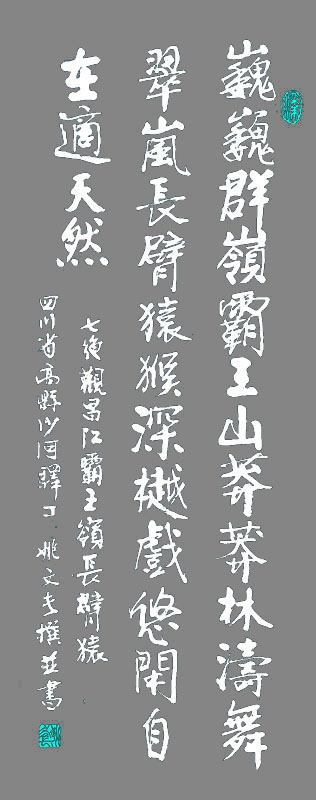 巍巍群嶺霸王山莽莽林濤舞
翠嵐長臂猿猴深樾戲悠閑自
在適天然
七绝觀昌江霸王嶺長臂猿
四川省高縣沙河驛丁姚文孝撰並書